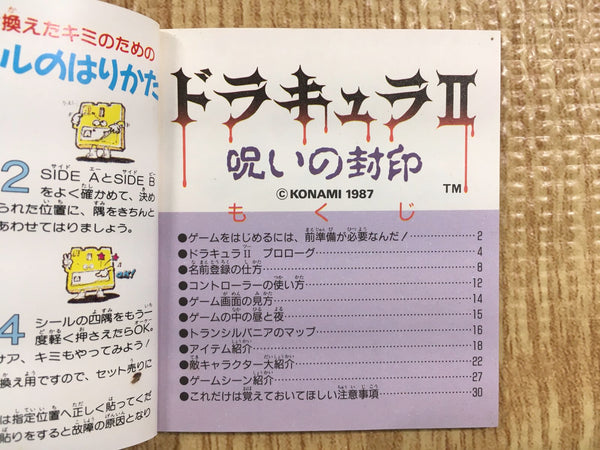 換えたキミのための
ルのはりかた
2 SIDE AとSIDE B
をよく確かめて、決め
られた位置に、隅をきちんと
あわせてはりましょう。
OK!
4 シールの四隅をもう一
度軽く押さえたらOK。
サア、キミもやってみよう!
換え用ですので、セット売りに
は指定位置へ正しく貼ってくだ
貼りをすると故障の原因となり
ドラキュラII
呪いの封印
©KONAMI 1987
TM
もくじ
●ゲームをはじめるには、前準備が必要なんだ!……2
●ドラキュラII プロローグ……4
●名前登録の仕方……8
●コントローラーの使い方……12
●ゲーム画面の見方……14
●ゲームの中の昼と夜……15
●トランシルバニアのマップ……16
●アイテム紹介……18
●敵キャラクター大紹介……22
●ゲームシーン紹介……27
●これだけは覚えておいてほしい注意事項……30